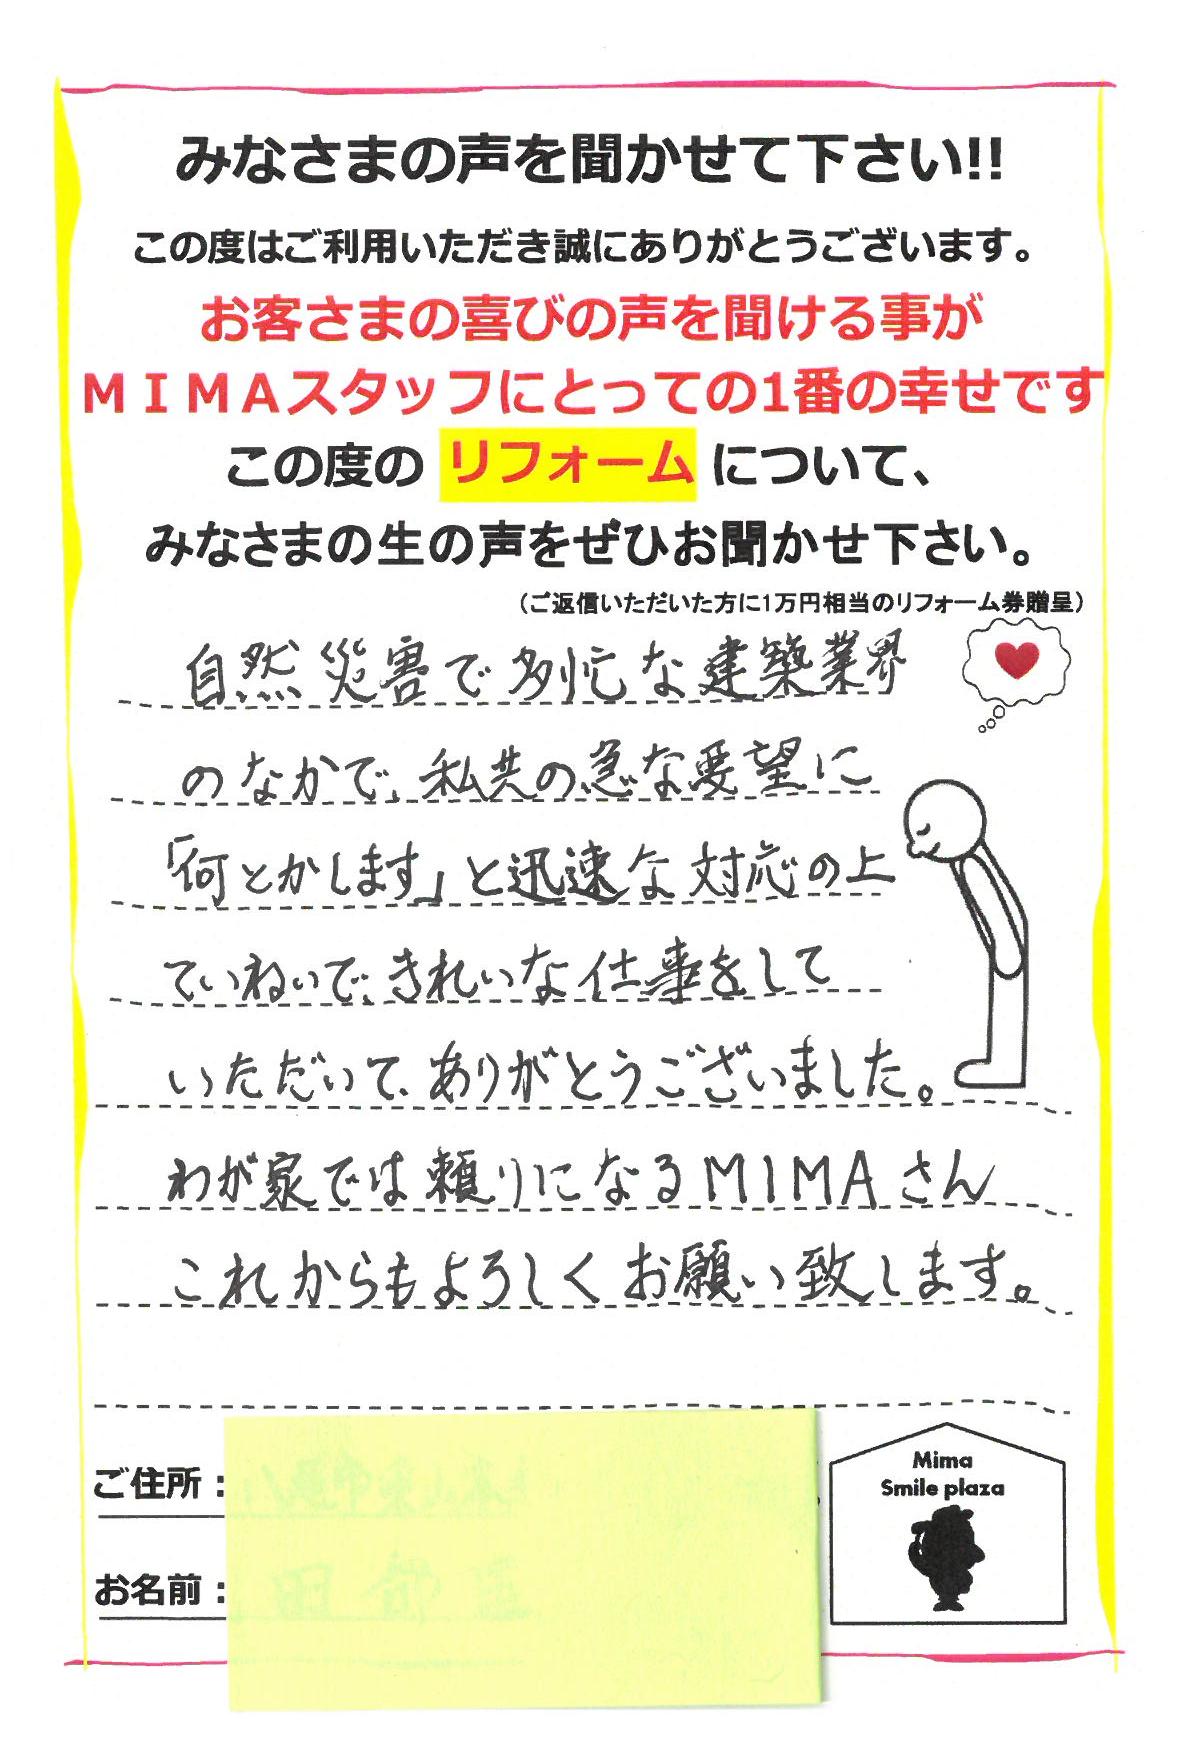 みなさまの声を聞かせて下さい!!
この度はご利用いただき誠にありがとうございます。
お客さまの喜びの声を聞ける事が
ＭＩＭＡスタッフにとっての1番の幸せです
この度の リフォーム について、
みなさまの生の声をぜひお聞かせ下さい。
（ご返信いただいた方に1万円相当のリフォーム券贈呈）
自然災害で多忙な建築業界
のなかで、私共の急な要望に
「何とかします」と迅速な対応の上
ていねいで、きれいな仕事をして
いただいて、ありがとうございました。
わが家では頼りになるMIMAさん
これからもよろしくお願い致します。
ご住所：
お名前：
Mima
Smile plaza